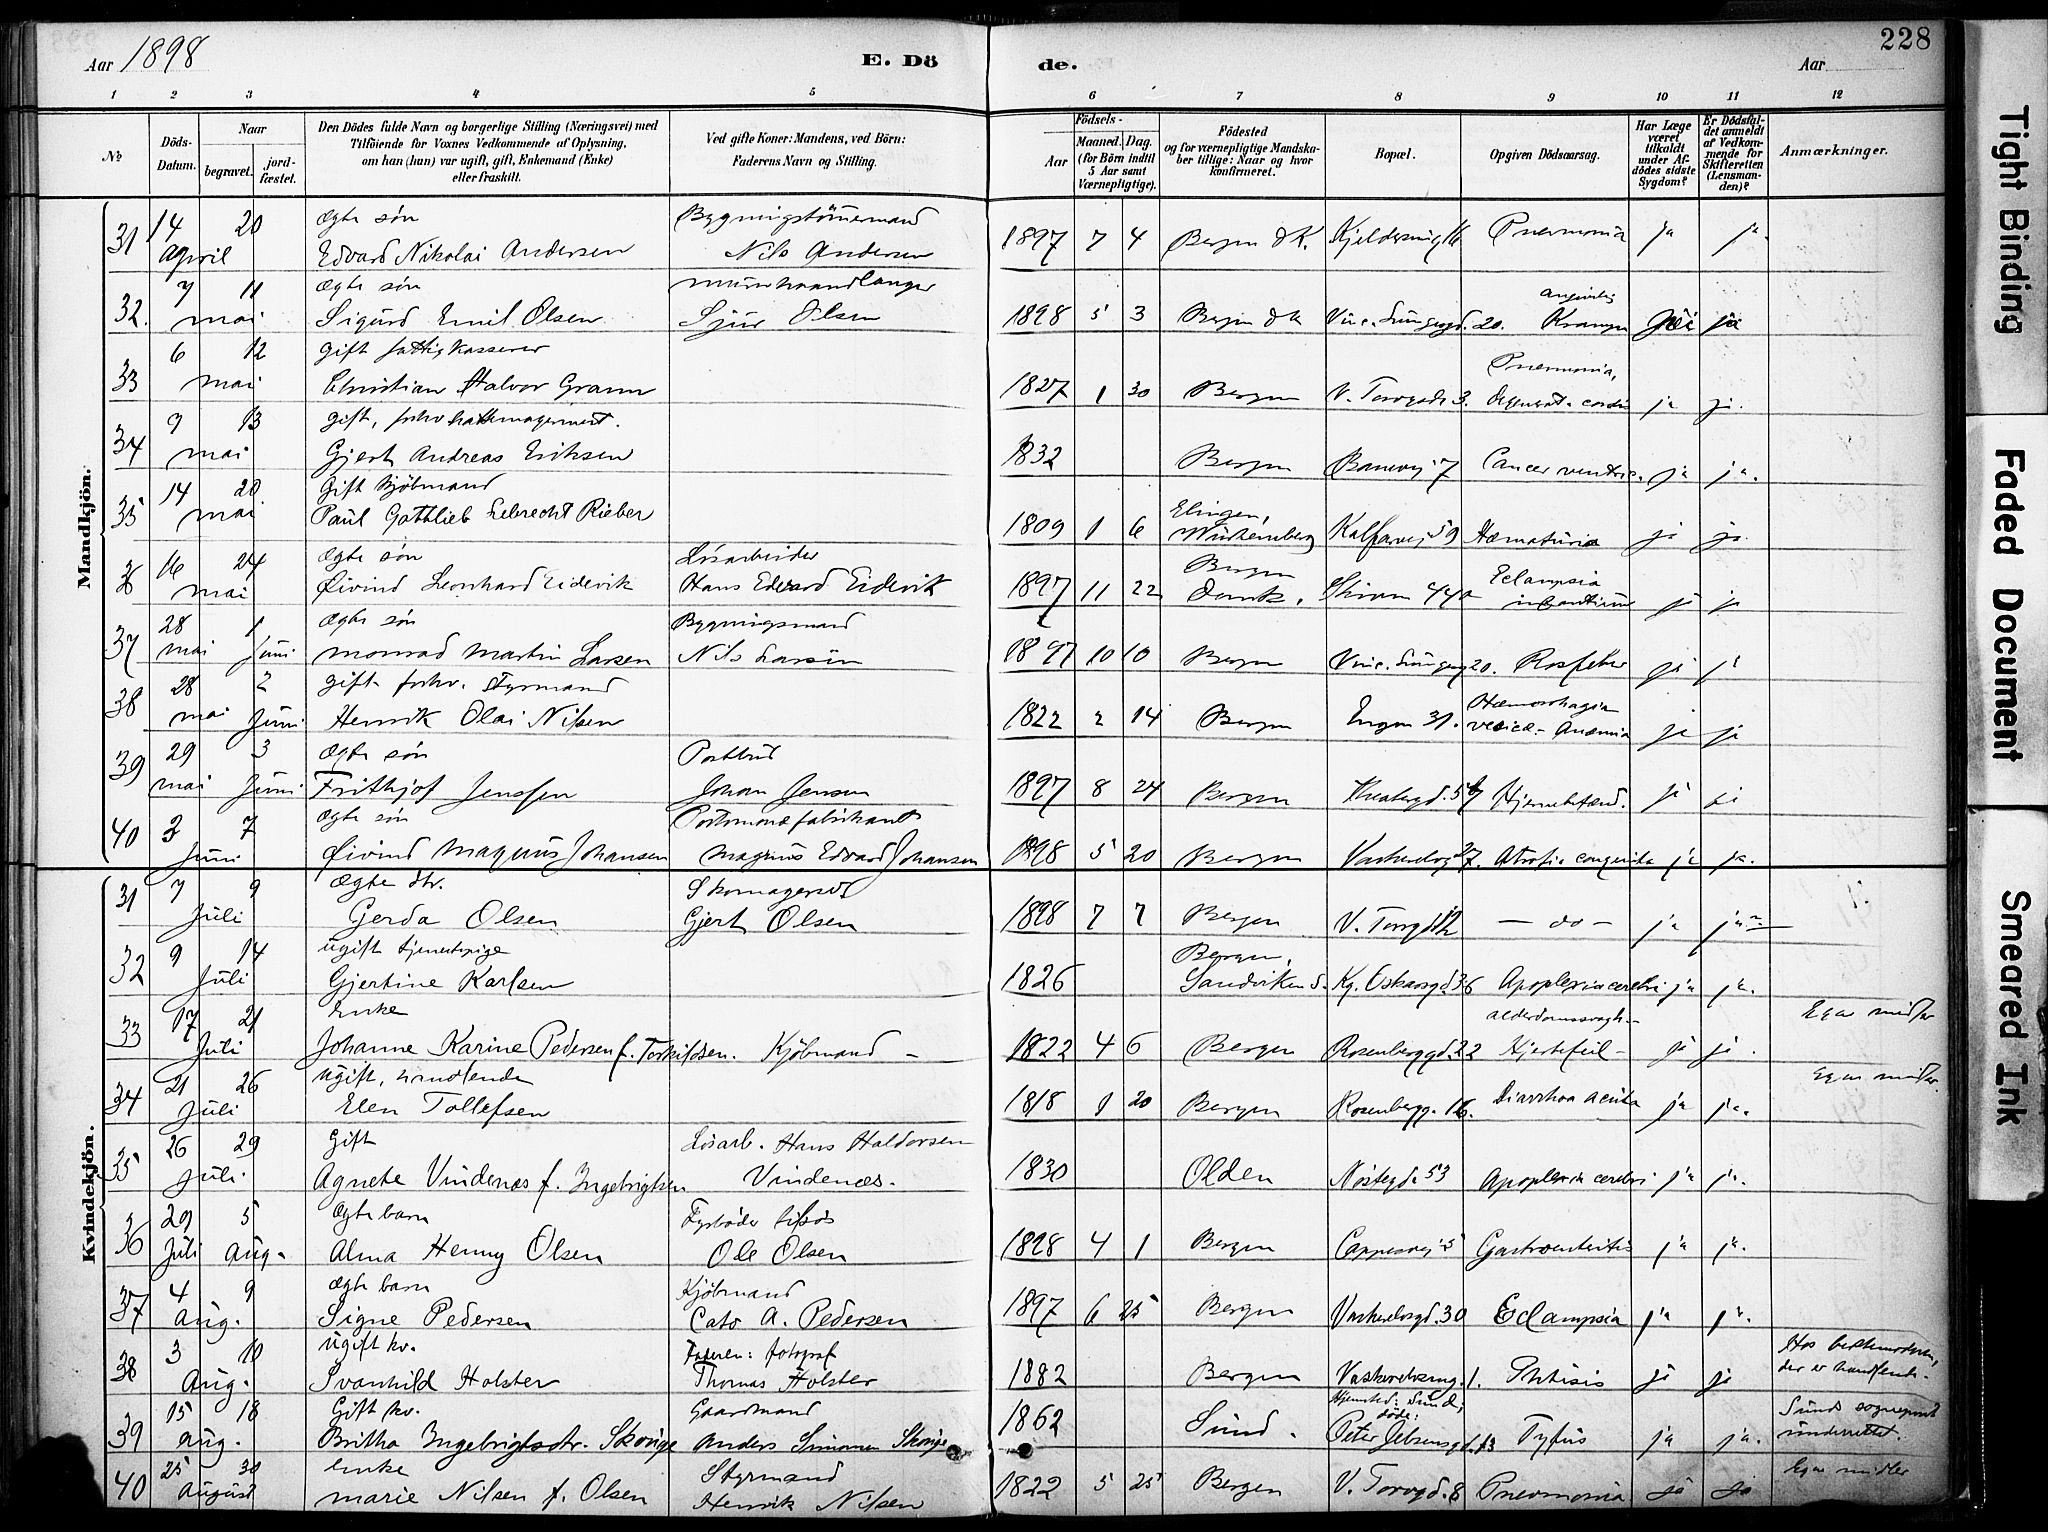 Aar 1898
E. Dö
de.
Aar
228
1 2 3 4 5 6 7 8 9 10 11 12
№
Döds-
Datum.
Naar
begravet.
jord-
fæstet.
Den Dödes fulde Navn og borgerlige Stilling (Næringsvei) med
Tilföiende for Voxnes Vedkommende af Oplysning,
om han (hun) var ugift, gift, Enkemand (Enke)
eller fraskilt.
Ved gifte Koner: Mandens, ved Börn:
Faderens Navn og Stilling.
Födsels-
Aar
Maaned. Dag.
(for Börn indtil
5 Aar samt
Værnepligtige).
Födested
og for værnepligtige Mandska-
ber tillige: Naar og hvor
konfirmeret.
Bopæl.
Opgiven Dödsaarsag.
Har Læge
været
tilkaldt
under Af-
dödes sidste
Sygdom?
Er Dödsfal-
det anmeldt
af Vedkom-
mende for
Skifteretten
(Lensman-
den)?
Anmærkninger.
Mandkjön.
31 14 20 Ægte søn Bygningstömmermand
april Edvard Nikolai Andersen Nils Andersen 1897 7 4 Bergen dK. Pneumonia ja ja.
32. 7 11 Ægte søn murerhaandlanger
mai Sigurd Emil Olsen. Sjur Olsen 1898 5 3 Bergen dk 20. ja
33 6 12 Gift fattigkasserer Pneumonia,
mai Christian Halvor Gramm 1827 1 30 Bergen V. Torvgd. 3. ja ja.
34 9 13 gift,
mai Gjert Andreas Eriksen 1832 Bergen Banevej 7 Cancer ventric. ja ja.
35 14 20 Gift Kjöbmand
mai Paul Gottlieb Lebrecht Rieber 1809 1 6 Würtemberg Kalfarvej 59 Hæmaturia ja ja.
36 16 24 Ægte søn Løsarbeider Bergen Eclampsia
mai Øivind Leonhard Eidevik Hans Edvard Eidevik 1897 11 22 Domk. 44a infantium ja ja
37 28 1 Ægte søn Bygningsmand
mai Juni Monrad Martin Larsen Nils Larsen 1897 10 10 Bergen 20. Rosfeber ja ja
38 28 2 gift forhv. Styrmand Hæmorrhagia
mai Juni Henrik Olai Nilsen 1822 2 14 Bergen Engen 31. vesicæ - Anæmia ja ja
39 29 3 Ægte søn Postbud
mai Juni Frithjof Jenssen Johan Jensen 1897 8 24 Bergen ja ja
40 3 7 Ægte søn Portemonæfabrikant
Juni Øivind Magnus Johansen Magnus Edvard Johansen 1898 5 20 Bergen Vaskerelvgd. 27. Atrofia congenita ja ja.
Kvindekjön.
31 7 9 Ægte dtr. Skomagersvd
Juli Gerda Olsen Gjert Olsen 1898 7 7 Bergen V. Torvgd 12 — do — ja ja
32 9 14 ugift tjenestepige Bergen,
Juli Gjertine Karlsen 1826 Sandviken s. Kg. Oskarsgd. 36 Apoplexia cerebri ja ja.
33 17 21 Enke Alderdomssvagh.- Egne midler
Juli Johanne Karine Pedersen f. Torkildsen. Kjöbmand — 1822 4 6 Bergen Rosenberggd. 22 Hjertefeil - ja ja.
34 21 26 Ugift, handlende Egne midler.
Juli Elen Tollefsen 1818 1 20 Bergen Rosenbergg. 16. Diarrhoa acuta ja ja.
35 26 29 Gift Løsarb. Hans Haldorsen
Juli. Agnete Vindenæs f. Ingebrigtsen Vindenæs. 1830 Olden Nöstegd. 53 Apoplexia cerebri ja ja.
36 29 5 Ægte barn Fyrbøder tilsøs
Juli Aug. Alma Henny Olsen Ole Olsen 1898 4 1 Bergen Gastroenteritis ja ja.
37 4 9 Ægte barn Kjöbmand
Aug. Signe Pedersen Cato A. Pedersen 1897 6 25 Bergen Vaskerelvsgd. 30 Eclampsia ja ja.
38 3 10 ugift kv. Faderen: fotograf Hos bestemoderen,
Aug. Svanhild Holster Thomas Holster 1882 Bergen 1. Phtisis ja ja der er handlende.
39 15 18 Gift kv. Gaardmand Hjemsted: Sund; døde: Sunds sogneprest
aug. Britha Ingebrigtsdtr. Skorge Anders Simonsen Skorge 1862 Sund. Peter Jebsensgd. 13 Tyfus ja ja. underrettet.
40 25 30 Enke Styrmand Egne midler
August Marie Nilsen f. Olsen Henrik Nilsen 1822 5 25 Bergen V. Torvgd. 8 Pneumonia ja ja
Tight Binding
Faded Document
Smeared Ink